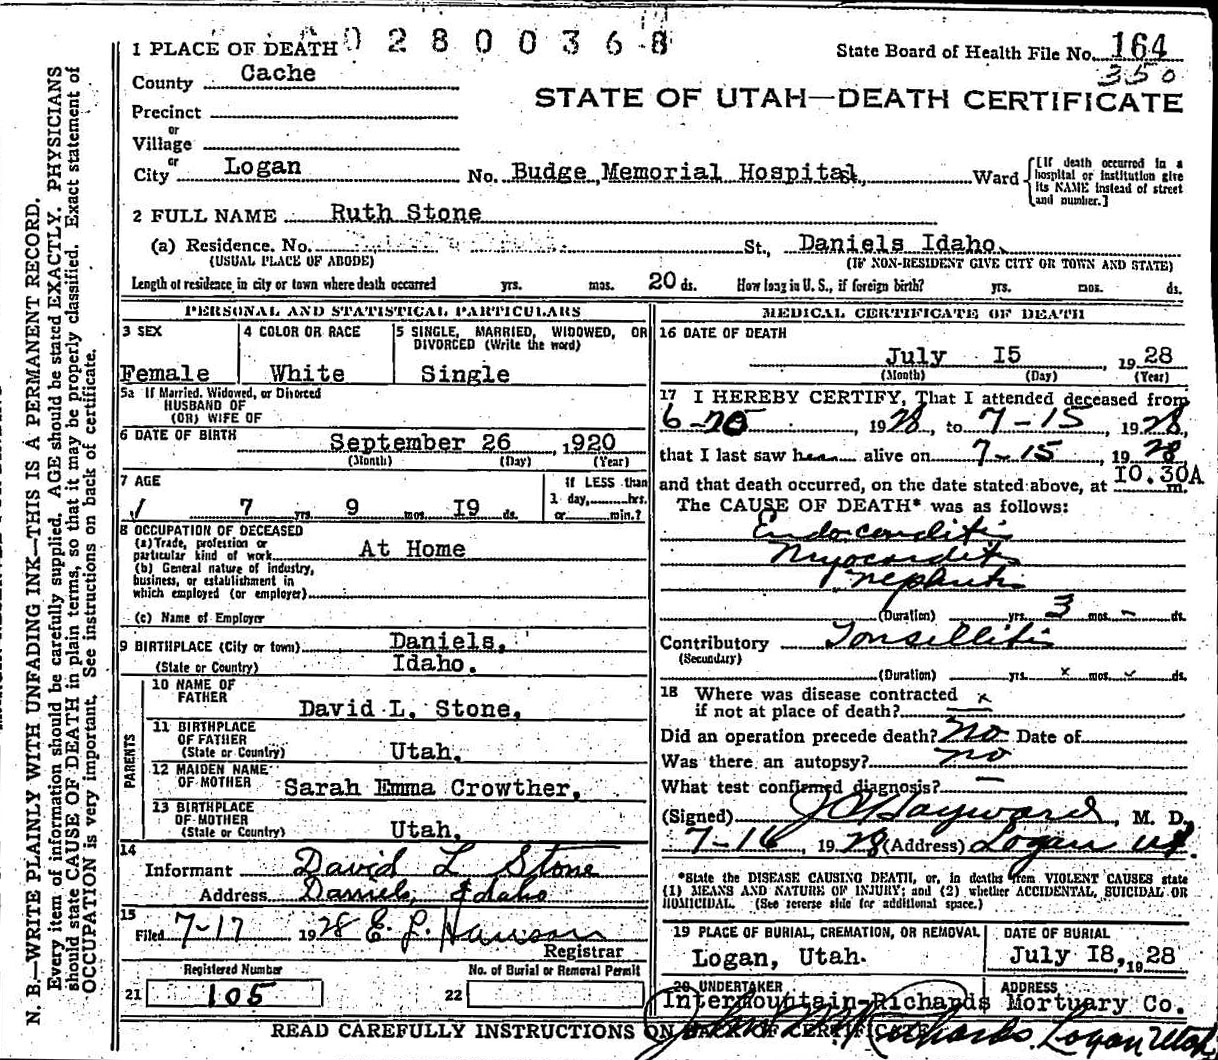 N. B.—WRITE PLAINLY WITH UNFADING INK—THIS IS A PERMANENT RECORD.
Every item of information should be carefully supplied. AGE should be stated EXACTLY. PHYSICIANS
should state CAUSE OF DEATH in plain terms, so that it may be properly classified. Exact statement of
OCCUPATION is very important. See instructions on back of certificate.
02800368
1 PLACE OF DEATH
State Board of Health File No. 164
350
County Cache
STATE OF UTAH—DEATH CERTIFICATE
Precinct
or
Village
or
City Logan No. Budge Memorial Hospital St., Ward
[If death occurred in a
hospital or institution give
its NAME instead of street
and number.]
2 FULL NAME Ruth Stone
(a) Residence. No. St., Daniels Idaho.
(USUAL PLACE OF ABODE) (IF NON-RESIDENT GIVE CITY OR TOWN AND STATE)
Length of residence in city or town where death occurred yrs. mos. 20 ds. How long in U. S., if foreign birth? yrs. mos. ds.
PERSONAL AND STATISTICAL PARTICULARS
3 SEX
Female
4 COLOR OR RACE
White
5 SINGLE, MARRIED, WIDOWED, OR
DIVORCED (Write the word)
Single
5a If Married, Widowed, or Divorced
HUSBAND OF
(OR) WIFE OF
6 DATE OF BIRTH
September 26, 1920
(Month) (Day) (Year)
7 AGE
7 yrs. 9 mos. 19 ds.
If LESS than
1 day, hrs.
or min.?
8 OCCUPATION OF DECEASED
(a) Trade, profession or
particular kind of work At Home
(b) General nature of industry,
business, or establishment in
which employed (or employer)
(c) Name of Employer
9 BIRTHPLACE (City or town) Daniels,
(State or Country) Idaho.
PARENTS
10 NAME OF
FATHER
David L. Stone.
11 BIRTHPLACE
OF FATHER
(State or Country) Utah.
12 MAIDEN NAME
OF MOTHER Sarah Emma Crowther,
13 BIRTHPLACE
OF MOTHER
(State or Country) Utah.
14
Informant David L Stone
Address Daniels, Idaho
15
Filed 7-17 1928 E. L. Hanson
Registrar
Registered Number No. of Burial or Removal Permit
21 105 22
MEDICAL CERTIFICATE OF DEATH
16 DATE OF DEATH
July 15, 1928
(Month) (Day) (Year)
17 I HEREBY CERTIFY, That I attended deceased from
6-20, 1928, to 7-15, 1928,
that I last saw her alive on 7-15, 1928
and that death occurred, on the date stated above, at 10.30A m.
The CAUSE OF DEATH* was as follows:
Endocarditis
Myocarditis
nephritis
(Duration) yrs. 3 mos. - ds.
Contributory Tonsillitis
(Secondary)
(Duration) yrs. x mos. ds.
18 Where was disease contracted
if not at place of death? x
Did an operation precede death? no Date of
Was there an autopsy? no
What test confirmed diagnosis? —
(Signed) J C Hayward, M. D.
7-16, 1928 (Address) Logan Ut.
*State the DISEASE CAUSING DEATH, or, in deaths from VIOLENT CAUSES state
(1) MEANS AND NATURE OF INJURY; and (2) whether ACCIDENTAL, SUICIDAL OR
HOMICIDAL. (See reverse side for additional space.)
19 PLACE OF BURIAL, CREMATION, OR REMOVAL
Logan, Utah.
DATE OF BURIAL
July 18, 1928
20 UNDERTAKER ADDRESS
Intermountain-Richards Mortuary Co.
Richards Logan Utah
READ CAREFULLY INSTRUCTIONS ON BACK OF CERTIFICATE